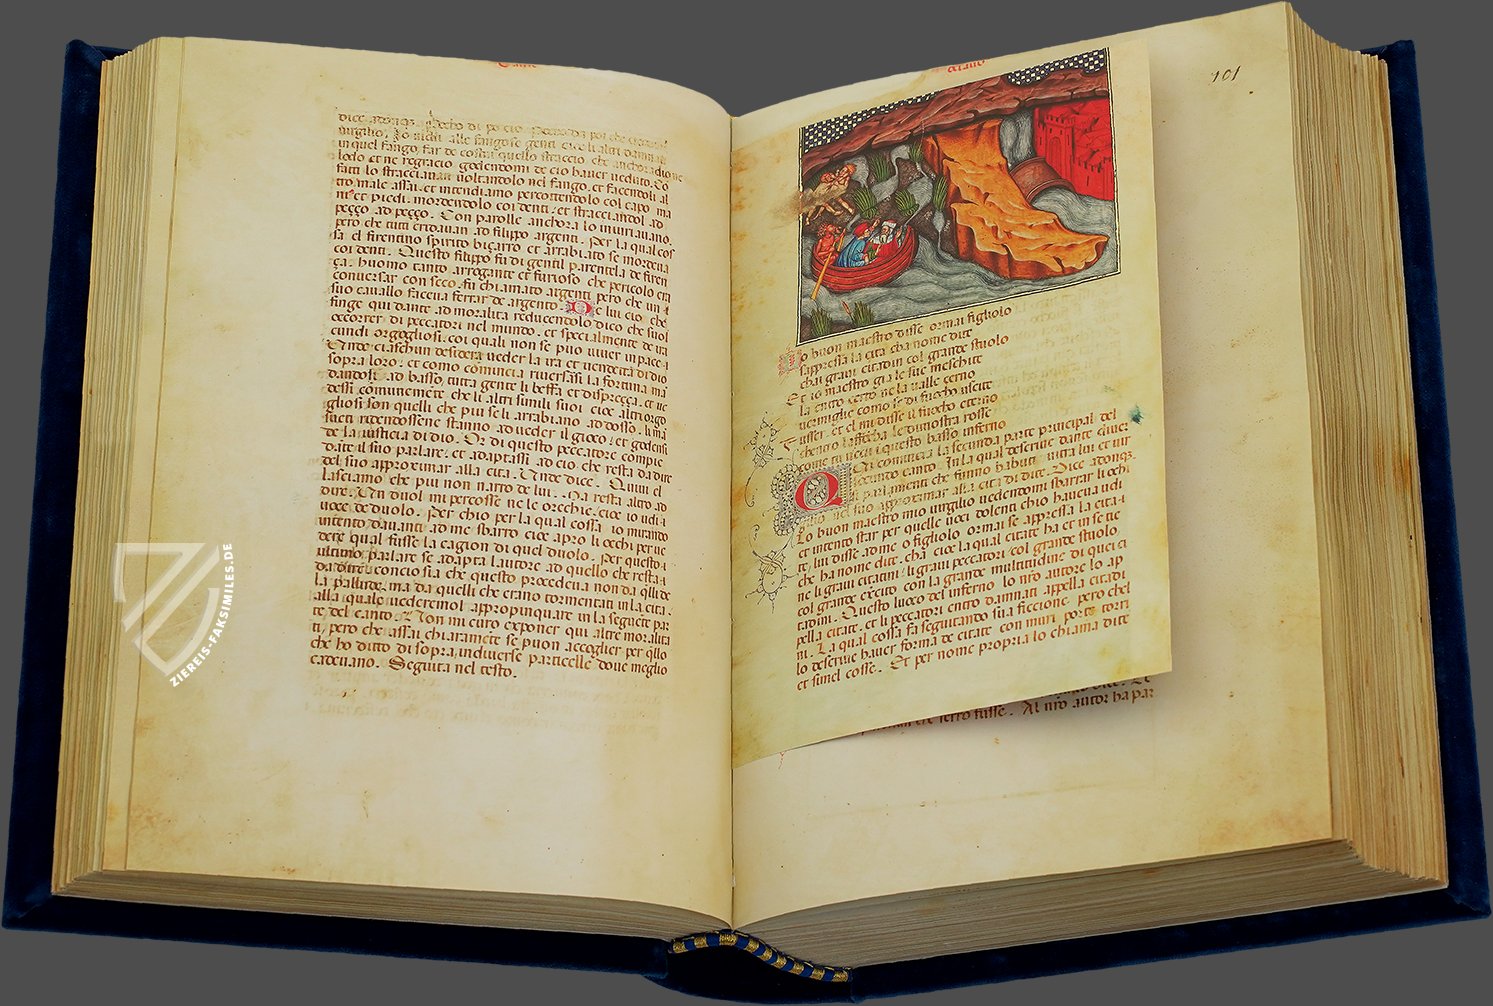 Canto
dice adonqz
virgilio. Io vidi alle fangose genti cioe li altri damnati
in quel fango, far de costui quello straccio che anchora dio ne
lodo et ne regracio godendomi de cio haver veduto. Co
lo stracciavan voltandolo nel fango. et facendoli al
tro male assai. et intendiamo percottendolo col capo ma
ni et piedi. mordendolo coi denti. et stracciandol ad
peçço ad peçço. Con parolle anchora lo iniuriavano.
pero che tutti cridavan ad filippo argenti. per la qual cos
sa el firentino spirito biçarro et arrabiato se mordeva
coi denti. Questo filippo fu di gentil parentela de firen
ça. huomo tanto arrogante et furioso che pericolo era
conversar con secco. fu chiamato argenti pero che un
suo cavallo faceva ferrar de argento. O e lui cio che
finge qui dante ad moralita reducendolo dico che suol
occorrer di peccatori nel mundo. et specialmente de ira
cundi orgogliosi. coi quali non se puo viver in pace
Unde ciaschun desidera veder la ira et vendeta di dio
sopra loro. et como comincia riversarsi la fortuna ma
dandosi ad basso, tutta gente li beffa et dispreçça. et ve
dessi comunemete che li altri simili suoi cioe altri orgo
gliosi son quelli che piu se li arrabiano adosso. li ma
stanno ad veder il gioco. et godensi
de la iusticia di dio. Or di questo peccatore compie
dante il suo parlare. et adaptassi ad cio che resta da dire
del suo approximar alla cita. Unde dice. Quivi el
lasciamo che piu non narro de lui. Ma resta altro ad
dire. Un duol mi percosse ne le orechie. cioe io udi
voce de duolo. Per chio per la qual cossa io mirando
intento davanti ad me sbarro cioe apro li ochi per ve
dere qual fusse la cagion di quel duolo. Per questo
ultimo parlare se adapta lautore ad quello che resta
da dire. concio sia che questo procedeva non da qlli de
la pallude. ma da quelli che erano tormentati in la cita.
alla quale vederemol appropinquare in la seguete par
te del canto. Non mi curo exponer qui altre moralita
ti, pero che assai chiaramete se puon accoglier per qllo
che ho ditto di sopra, in diverse particelle dove meglio
cadevano. Seguita nel testo.
101
Lo buon maestro disse ormai figliolo
sappressa la cita cha nome dite
chai gravi citadin col grande stuolo
Et io maestro gia le sue meschite
la entro certo ne la valle cerno
vermiglie come se di fuocho uscite
fusser. et el mi disse il fuocho eterno
chentro laffocha le dimostra rosse
come tu vedi i questo basso inferno
Qui comincia la secunda parte principal del
secundo canto. In la qual descrive dante dhaver
li parlamenti che funno habuti intra lui et vir
gilio nel suo approximar alla cita di dite. Dice adonqz.
Lo buon maestro mio virgilio vedendomi sbarrar li ochi
et intento star per quelle voci dolenti chio haveva udi
te, lui disse ad me o figliolo ormai se appressa la cita
che ha nome dite. cha cioe la qual citate ha et in se tie
ne li gravi citatini. li gravi peccatori col grande stuolo
col grande exercito con la grande multitudine di quei ci
tadini. Questo luoco del inferno lo nro autore lo ap
pella citate. et li peccatori entro damnati appella citadi
ni. La qual cossa fa seguitando sua ficcione, pero chel
lo descrive haver forma de citate con muri porte torri
et simel cosse. Et per nome propria lo chiama dite
ferro fusse. Al nro autor ha par
ZIEREIS-FAKSIMILES.DE